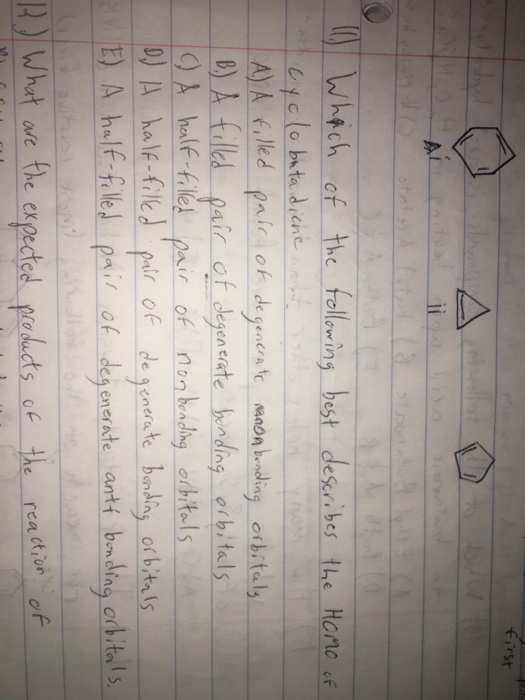 first
i
ii
11.) Which of the following best describes the HOMO of
cyclobutadiene
A) A filled pair of degenerate nonbonding orbitals
B.) A filled pair of degenerate bonding orbitals
C) A half-filled pair of nonbonding orbitals
D.) A half-filled pair of degenerate bonding orbitals
E) A half-filled pair of degenerate anti bonding orbitals.
12.) What are the expected products of the reaction of